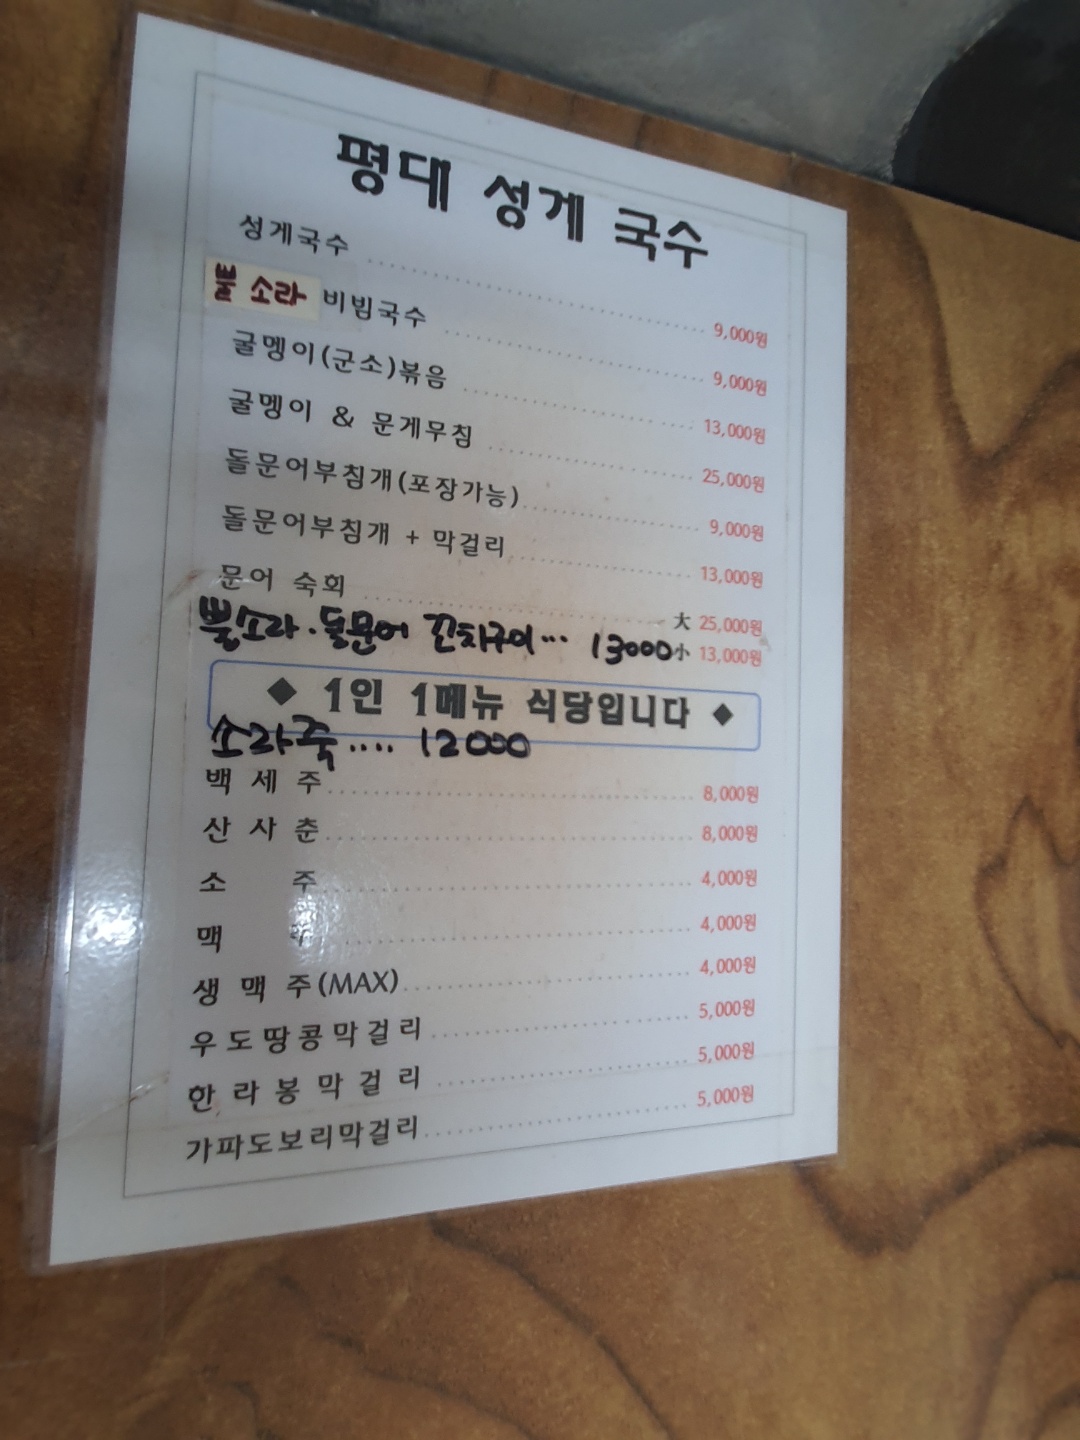 평대 성게 국수
성게국수 9,000원
뿔 소라 비빔국수 9,000원
굴멩이(군소)볶음 13,000원
굴멩이 & 문게무침 25,000원
돌문어부침개(포장가능) 9,000원
돌문어부침개 + 막걸리 13,000원
문어 숙회 大 25,000원
小 13,000원
뿔소라·돌문어 꼬치구이... 13000
◆ 1인 1메뉴 식당입니다 ◆
소라죽.... 12000
백 세 주 8,000원
산 사 춘 8,000원
소 주 4,000원
맥 주 4,000원
생 맥 주(MAX) 4,000원
우도땅콩막걸리 5,000원
한라봉막걸리 5,000원
가파도보리막걸리 5,000원